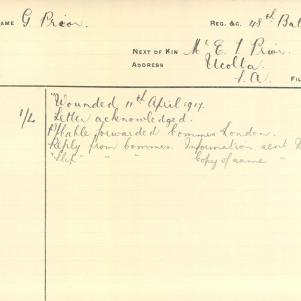 NAME G Prior. REG. &C. 48th Bat
NEXT OF KIN Mr E. J Prior.
ADDRESS Ucolta
S.A.
FIL
1/2 "Wounded 11th April 1917.
Letter acknowledged.
cable forwarded Commis London.
Reply from Commis Information
" " Copy of same "